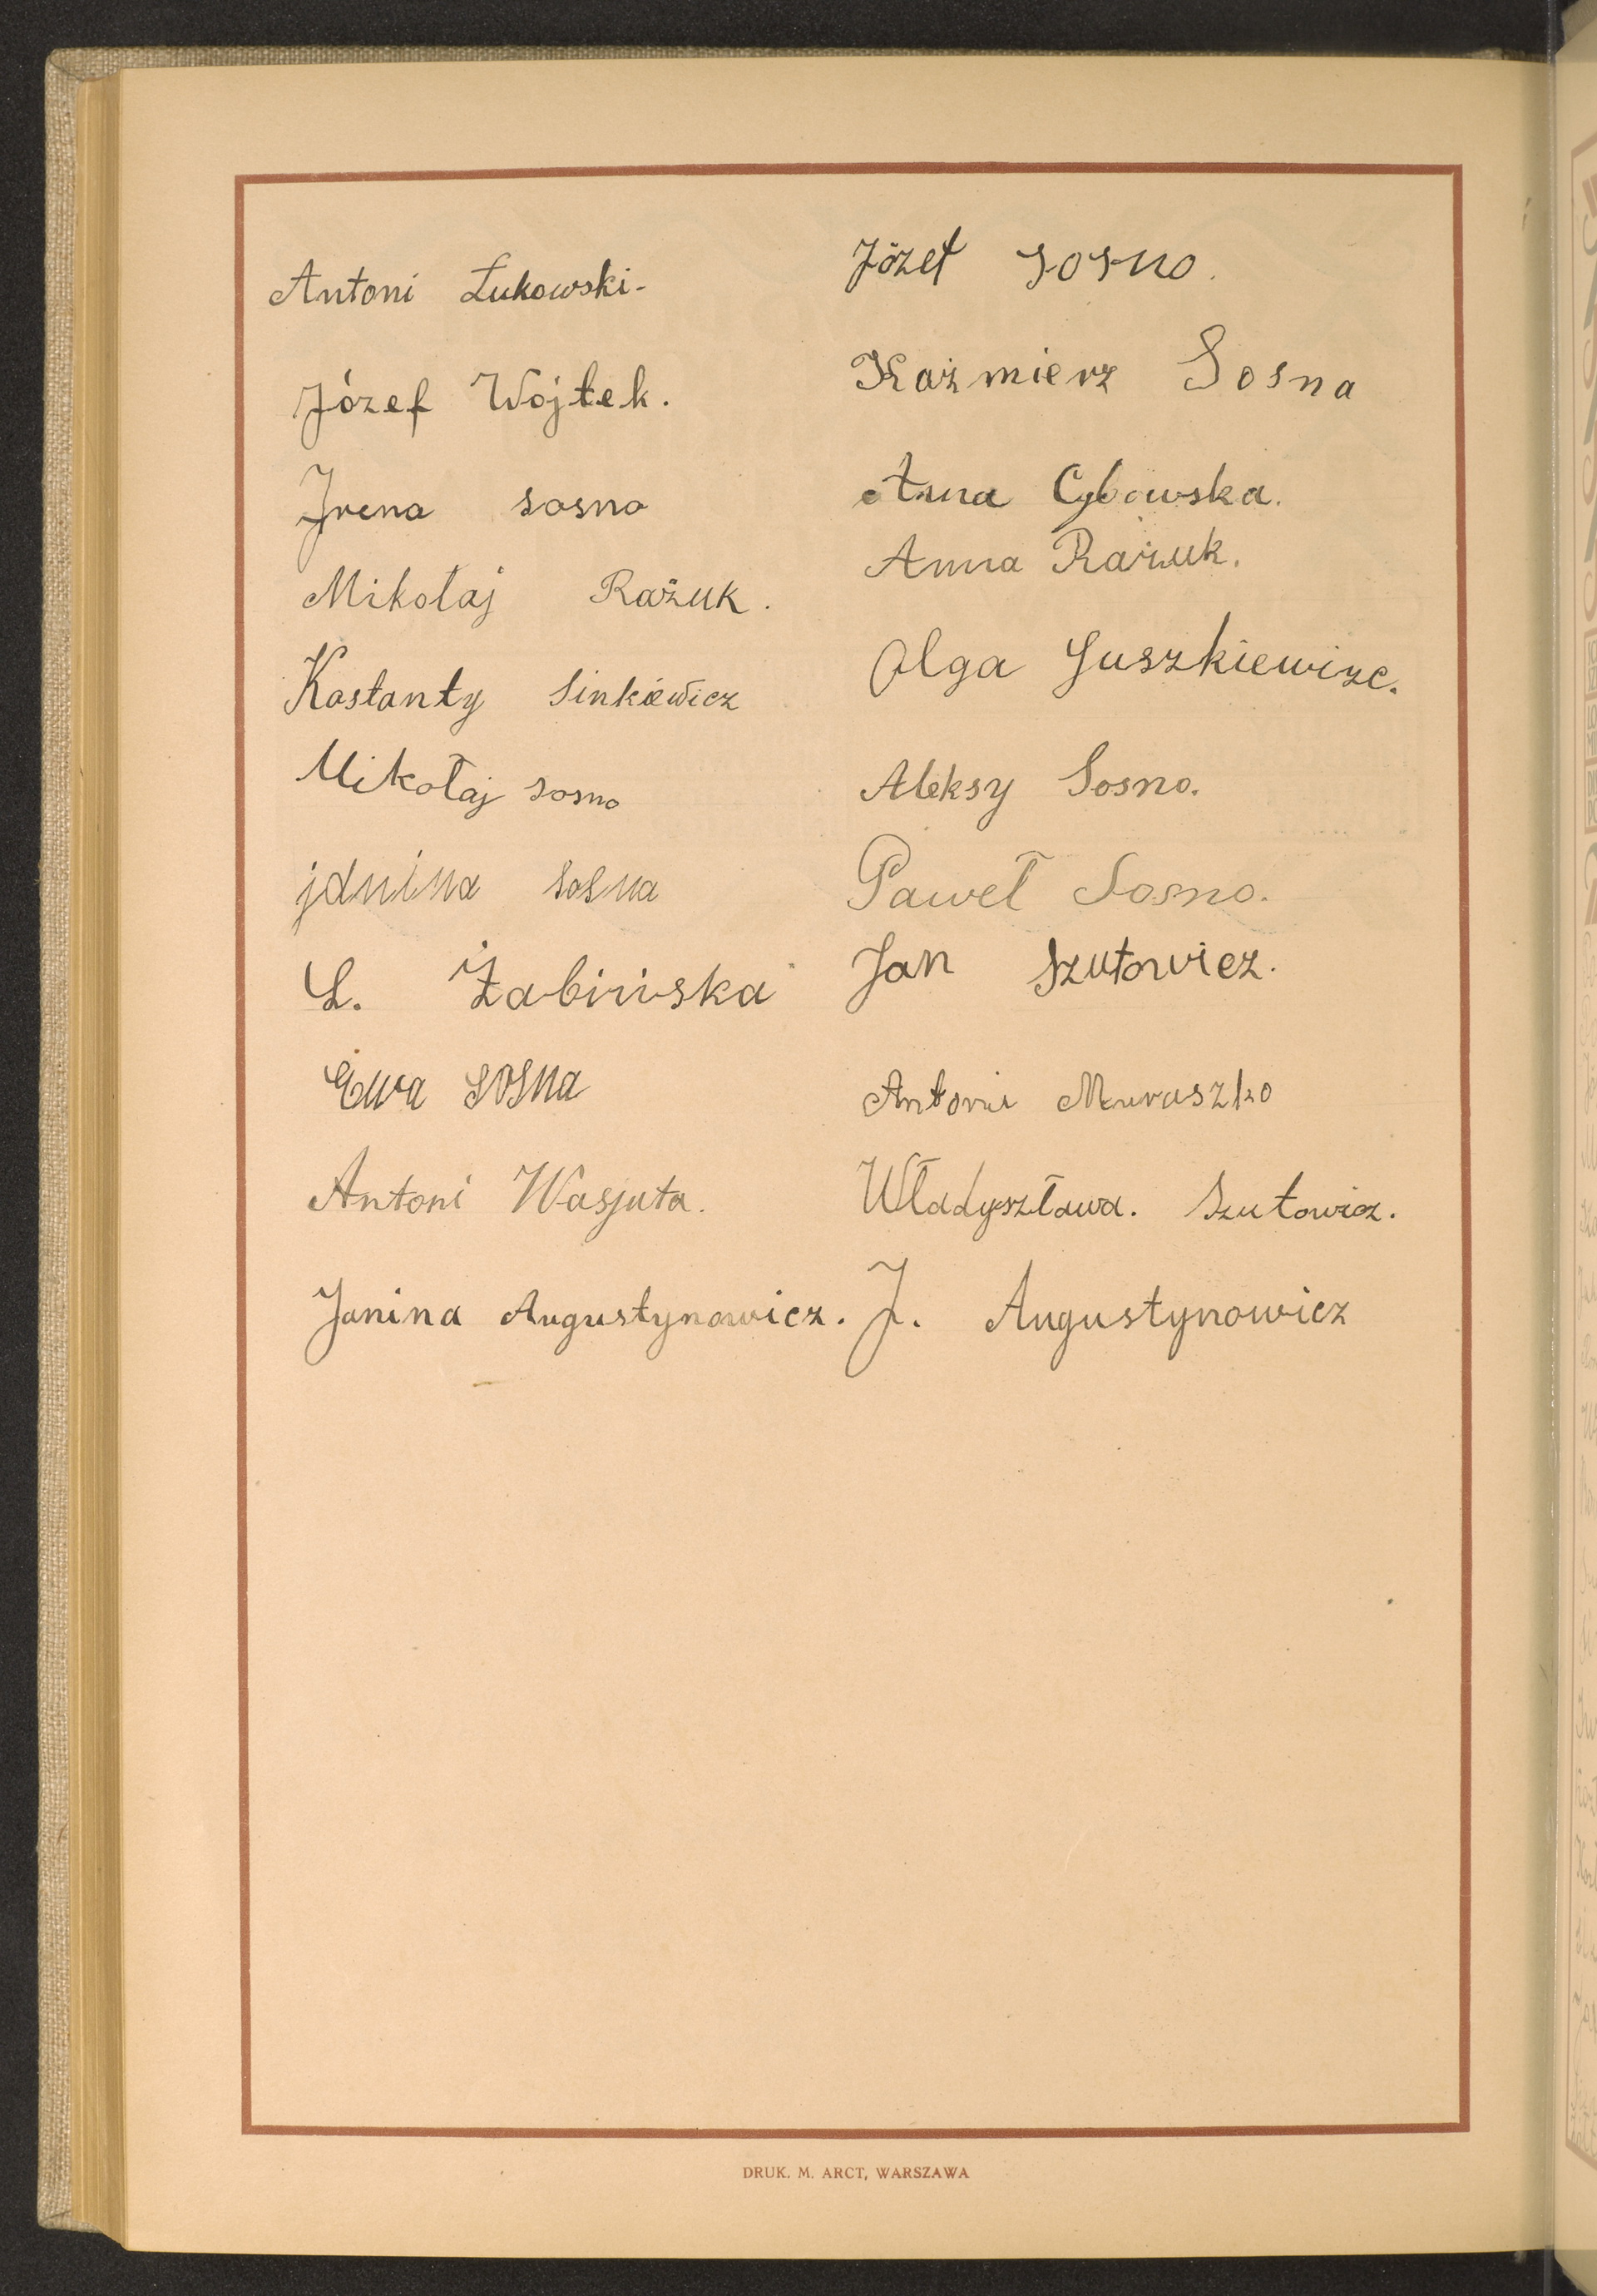 Antoni Łukowski-
Józef Wojtek.
Irena sosno
Mikołaj Rażuk.
Kostanty Sinkiewicz
Mikołaj sosno
janina sosna
L. Żabińska
Ewa sosna
Antoni Wasjuta.
Janina Augustynowicz.
Józef sosno.
Kaźmierz Sosna
Anna Cybowska.
Anna Rażuk.
Olga Juszkiewizc.
Aleksy Sosno.
Paweł Sosno.
Jan Szutowicz.
Antoni Muraszko
Władyszława. Szutowicz.
J. Augustynowicz
DRUK. M. ARCT, WARSZAWA